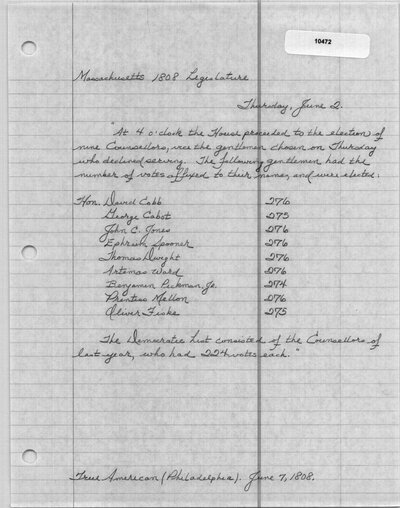 10472
Massachusetts 1808 Legislature
Thursday, June 2.
"At 4 o'clock the House proceeded to the election of
nine Counsellors, vice the gentlemen chosen on Thursday
who declined serving. The following gentlemen had the
number of votes affixed to their names, and were elected:
Hon. David Cobb 276
George Cabot 275
John C. Jones 276
Ephrim Spooner 276
Thomas Dwight 276
Artemas Ward 276
Benjamin Pickman, Jr. 274
Prentiss Mellon 276
Oliver Fiske 275
The Democratic List consisted of the Counsellors of
last year, who had 224 votes each."
True American (Philadelphia). June 7, 1808.